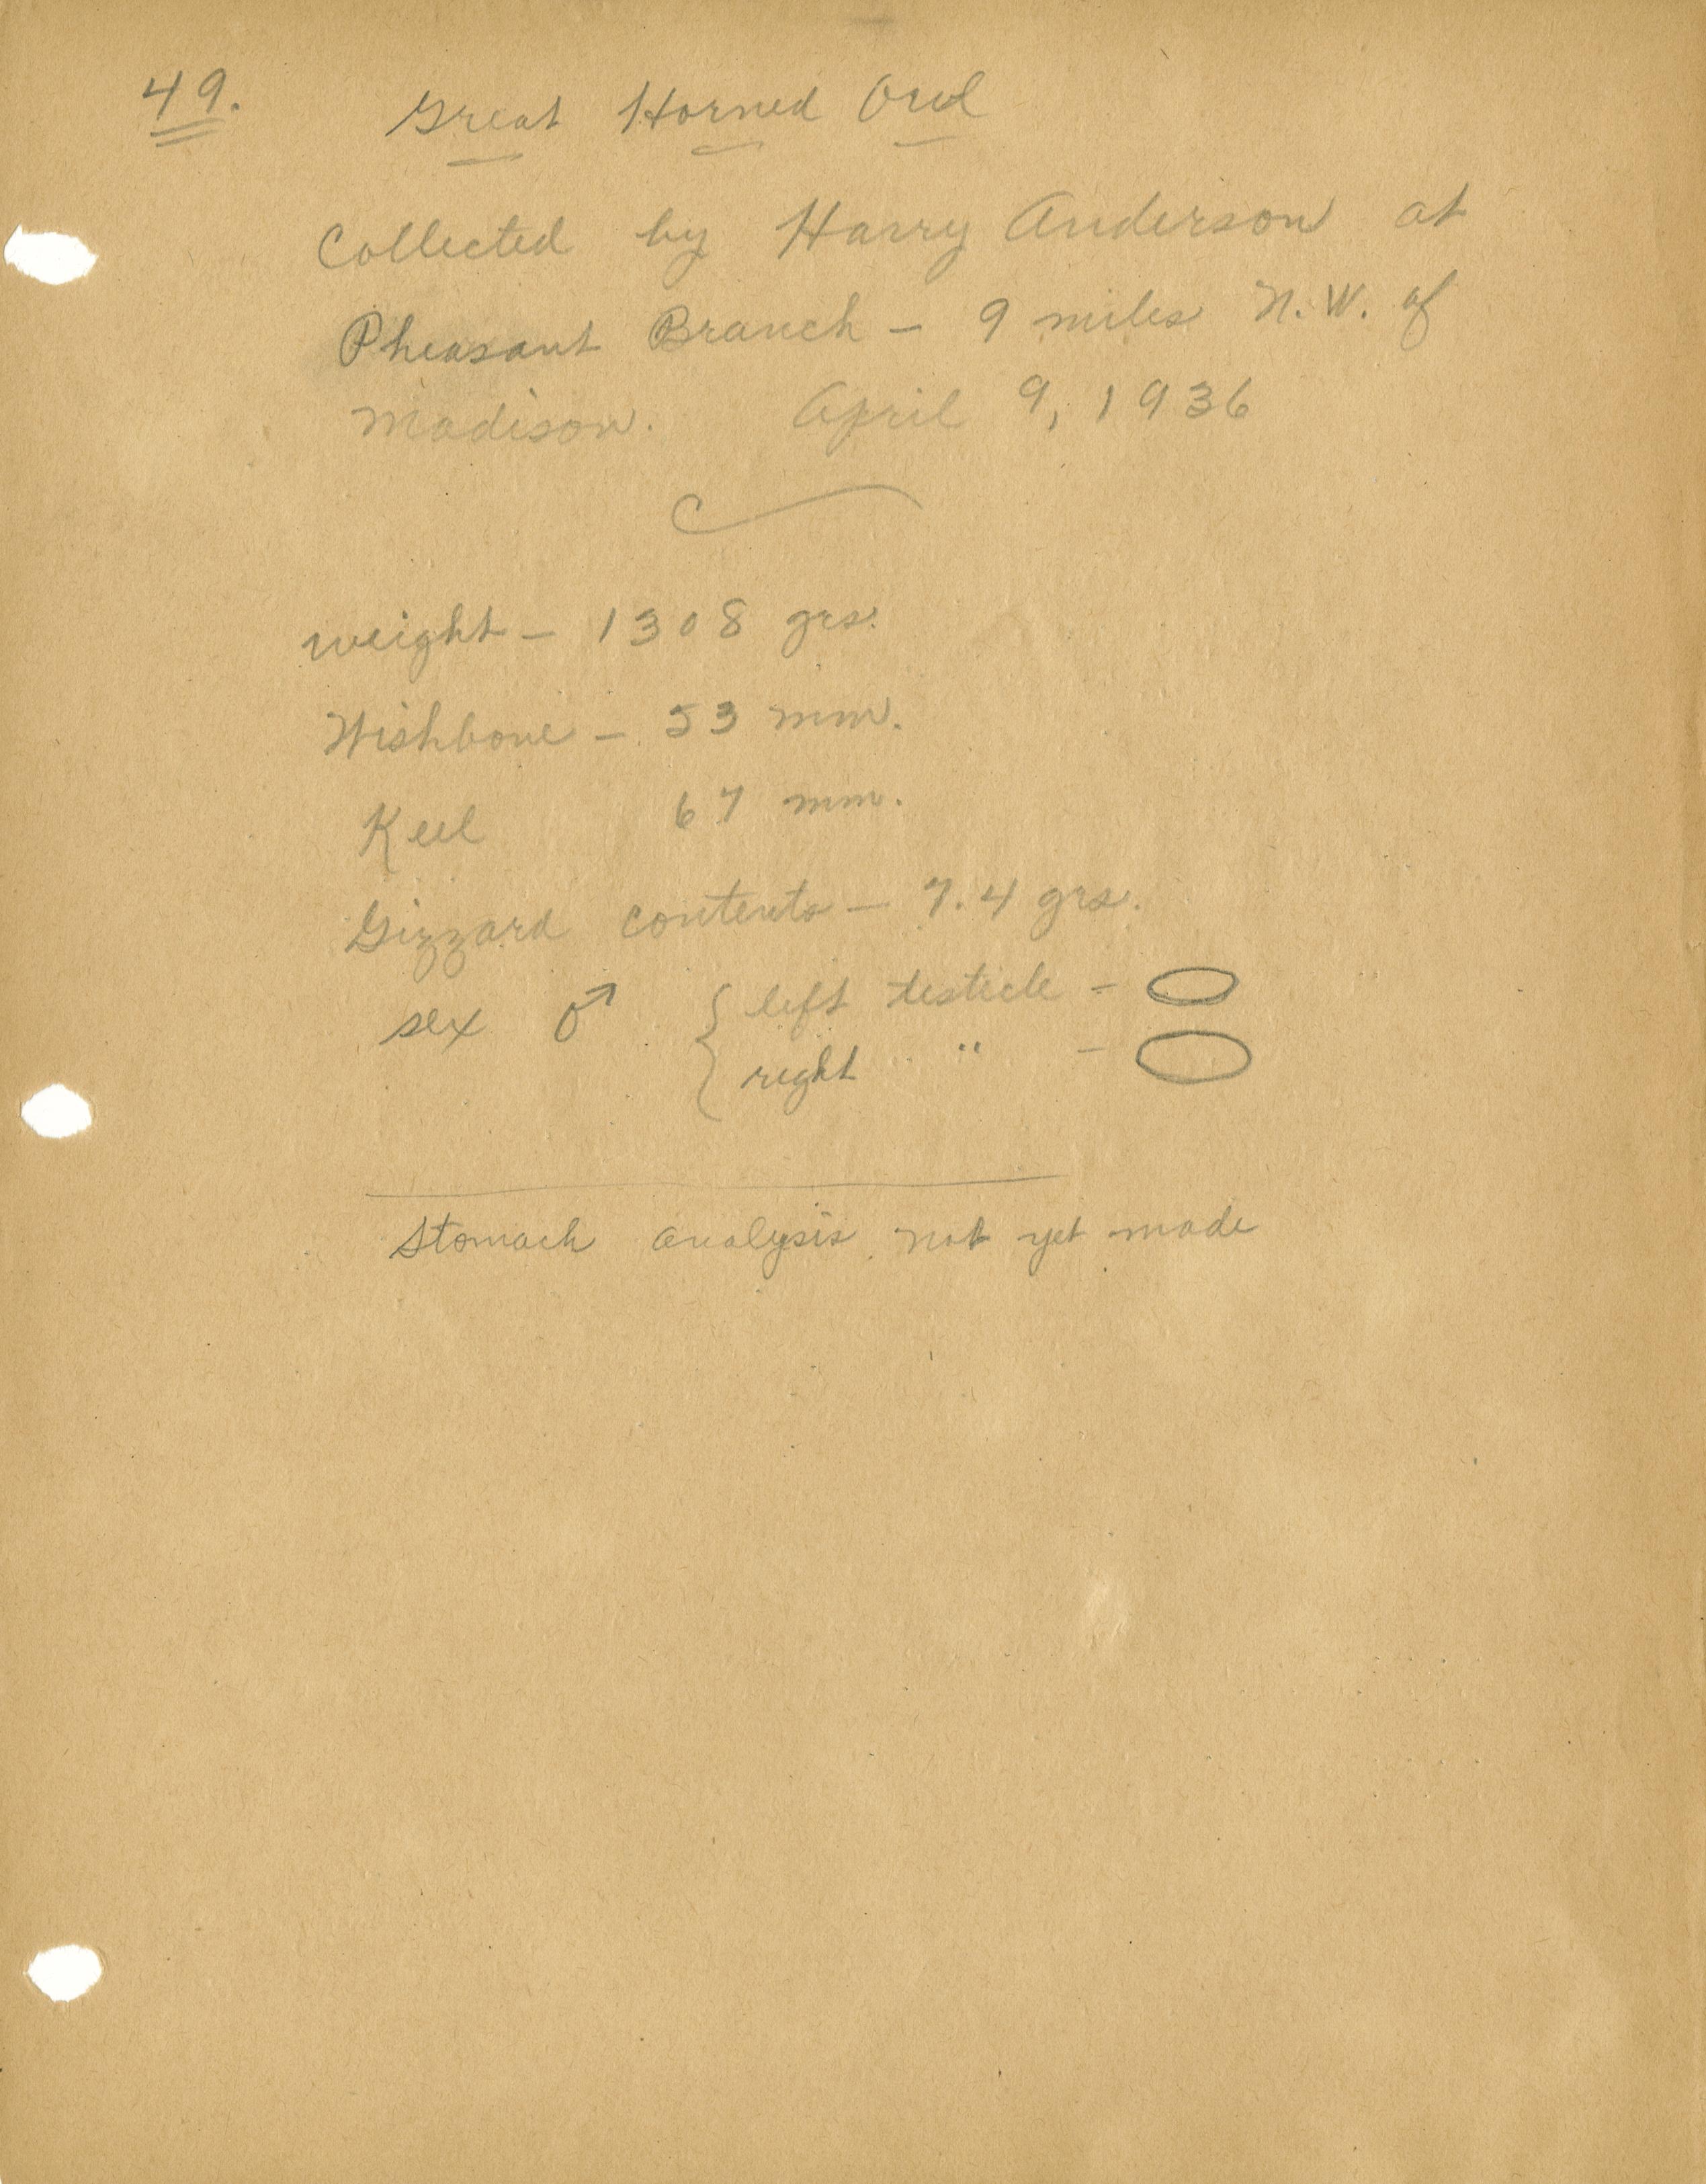 49. Great Horned Owl
Collected by Harry Anderson at
Pheasant Branch – 9 miles N.W. of
Madison. April 9, 1936
weight – 1308 grs.
Wishbone – 53 mm.
Keel 67 mm.
Gizzard contents – 7.4 grs.
sex ♂ { left testicle –
right " –
Stomach analysis not yet made